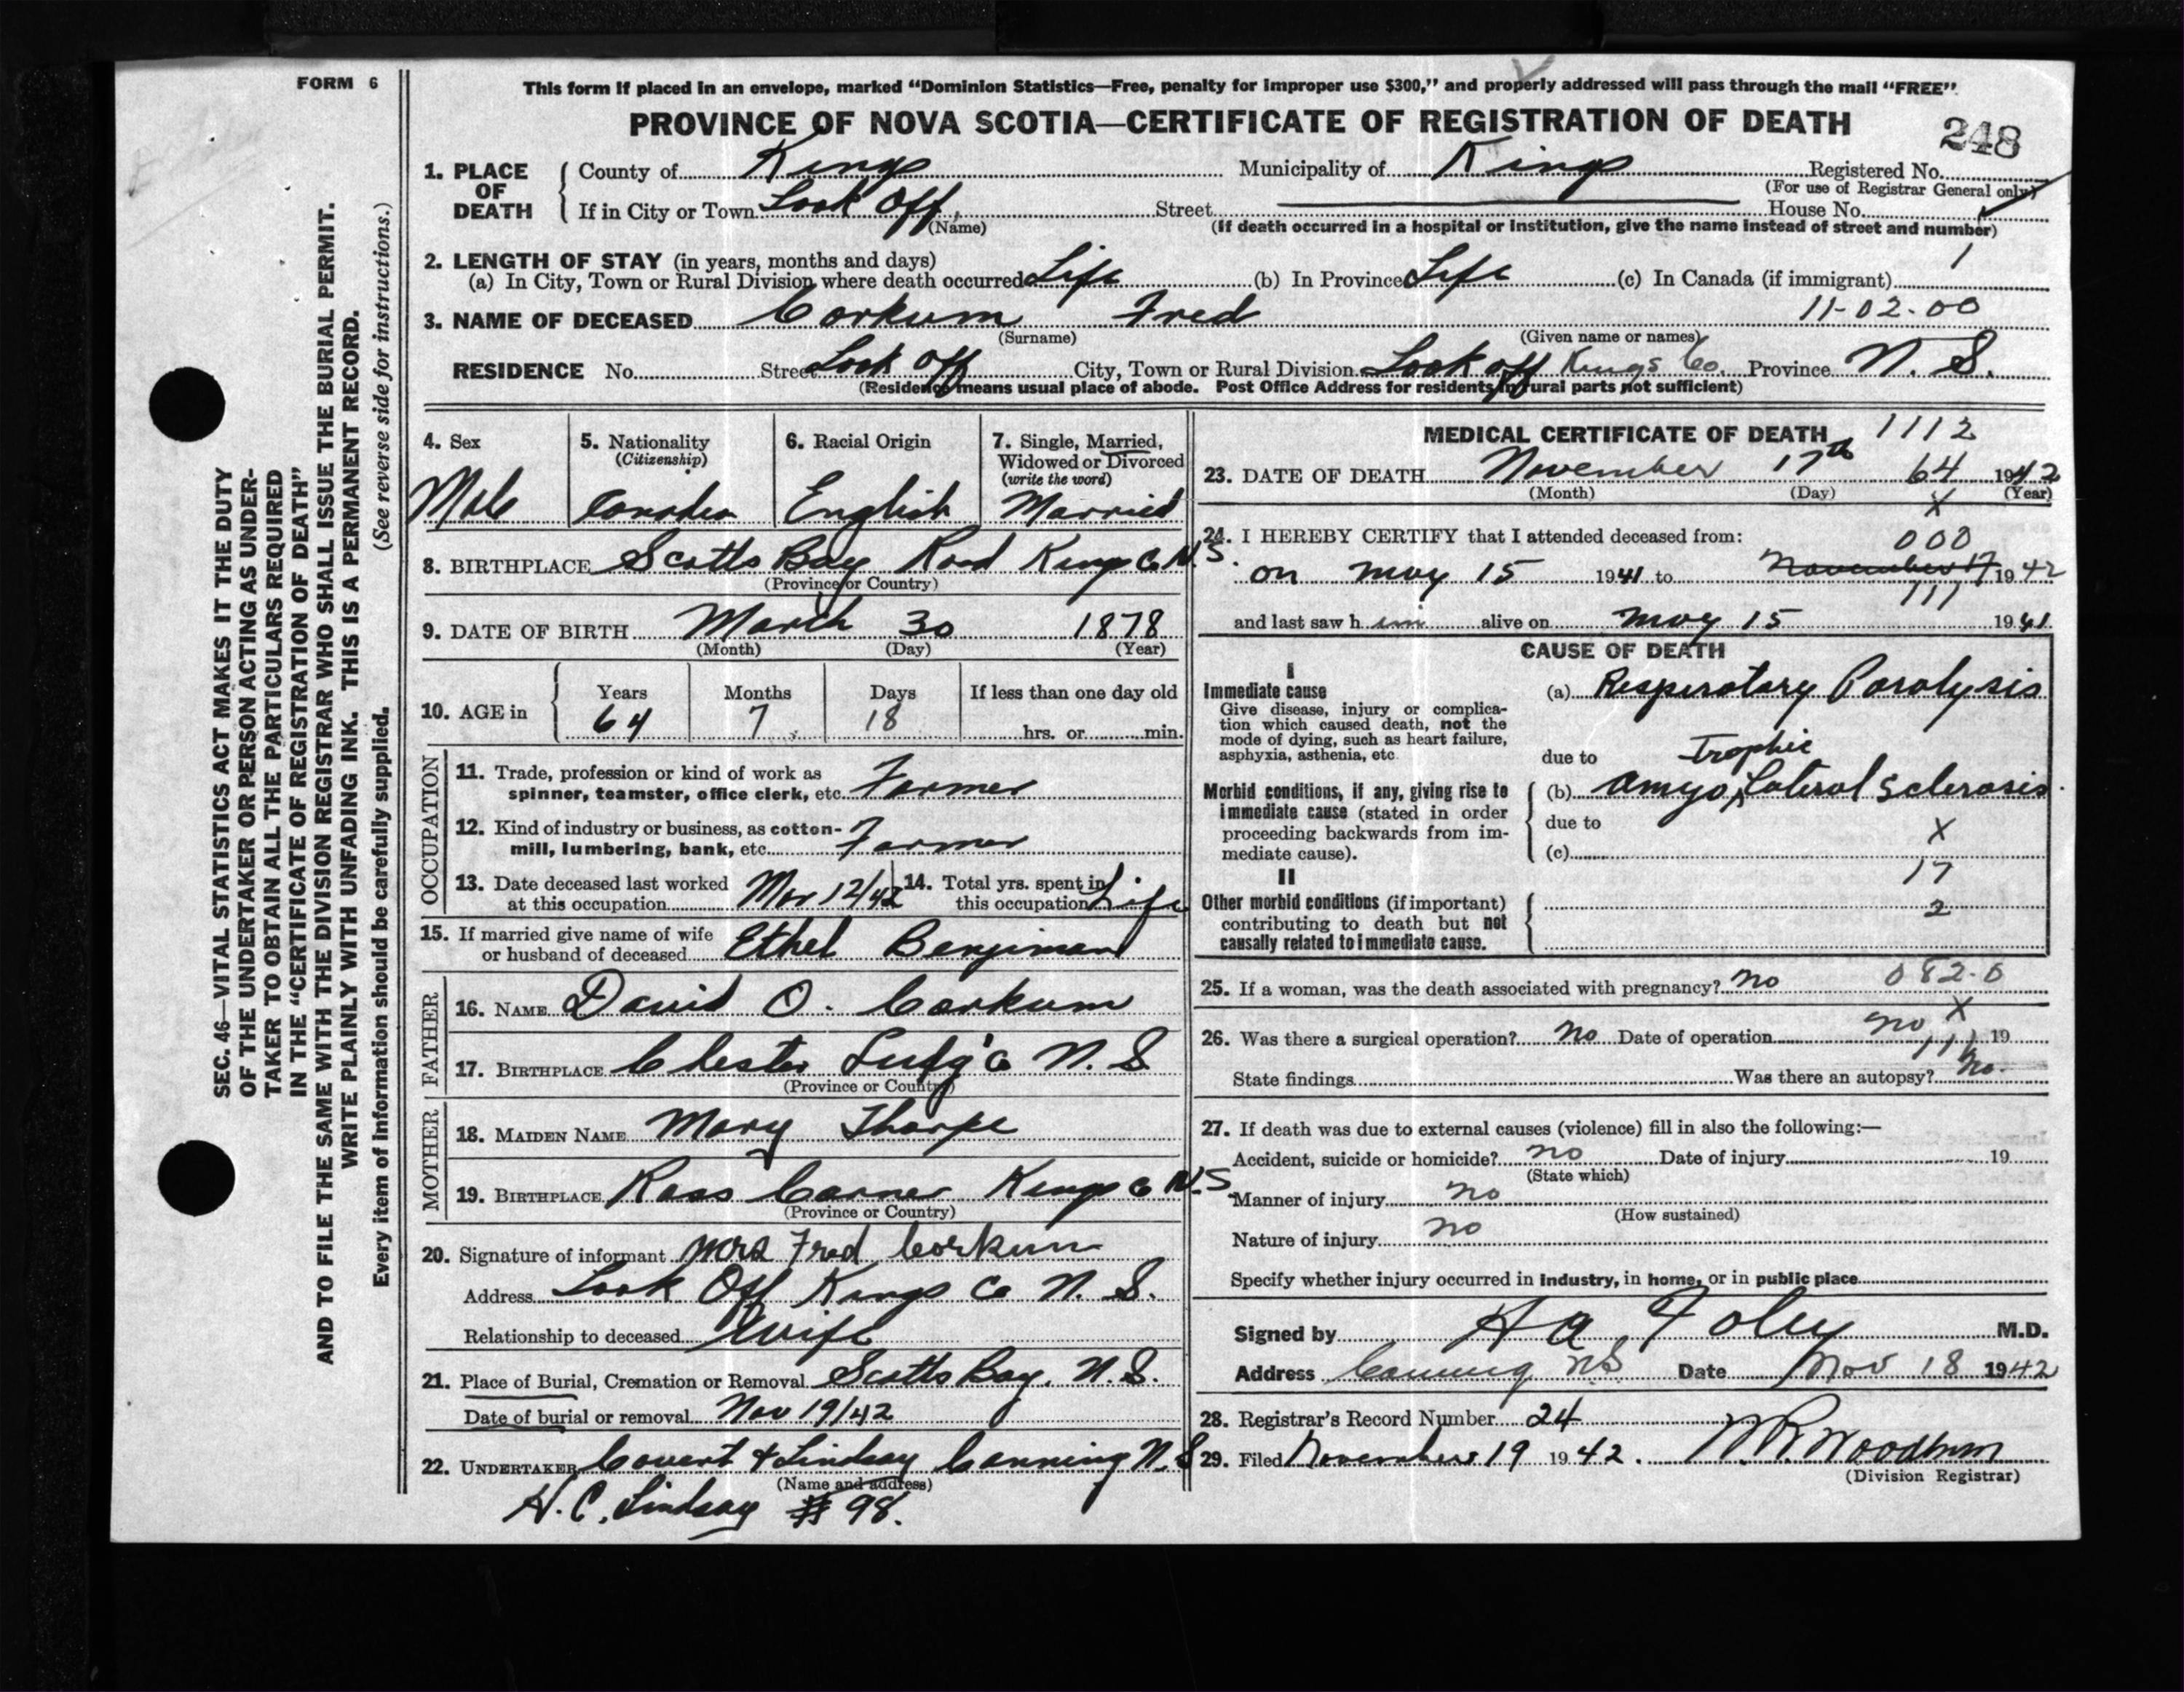 FORM 6
This form if placed in an envelope, marked “Dominion Statistics—Free, penalty for improper use $300,” and properly addressed will pass through the mail “FREE”.
PROVINCE OF NOVA SCOTIA—CERTIFICATE OF REGISTRATION OF DEATH
248
1. PLACE OF DEATH
County of Kings Municipality of Kings Registered No.
(For use of Registrar General only)
If in City or Town Look Off, Street House No.
(Name) (If death occurred in a hospital or institution, give the name instead of street and number)
2. LENGTH OF STAY (in years, months and days) 1
(a) In City, Town or Rural Division where death occurred Life (b) In Province Life (c) In Canada (if immigrant)
11-02-00
3. NAME OF DECEASED Corkum Fred
(Surname) (Given name or names)
RESIDENCE No. Street Look Off City, Town or Rural Division Look off Kings Co. Province N. S.
(Residence means usual place of abode. Post Office Address for residents in rural parts not sufficient)
4. Sex
Male
5. Nationality
(Citizenship)
Canadian
6. Racial Origin
English
7. Single, Married,
Widowed or Divorced
(write the word)
Married
8. BIRTHPLACE Scotts Bay Road Kings Co N.S.
(Province or Country)
9. DATE OF BIRTH March 30 1878
(Month) (Day) (Year)
10. AGE in
Years Months Days If less than one day old
64 7 18 hrs. or min.
OCCUPATION
11. Trade, profession or kind of work as
spinner, teamster, office clerk, etc. Farmer
12. Kind of industry or business, as cotton-
mill, lumbering, bank, etc. Farmer
13. Date deceased last worked
at this occupation Mar 12/42
14. Total yrs. spent in
this occupation Life
15. If married give name of wife
or husband of deceased Ethel Benjiman
FATHER
16. NAME David O. Corkum
17. BIRTHPLACE Chester Lufg'Co N. S
(Province or Country)
MOTHER
18. MAIDEN NAME Mary Tharpe
19. BIRTHPLACE Ross Corner Kings Co N.S
(Province or Country)
20. Signature of informant Mrs Fred Corkum
Address Look Off Kings Co N. S.
Relationship to deceased Wife
21. Place of Burial, Cremation or Removal Scotts Bay, N. S.
Date of burial or removal Nov 19/42
22. UNDERTAKER Covert & Lindsay Canning N.S
(Name and address)
H. C. Lindsay # 98.
MEDICAL CERTIFICATE OF DEATH 1112
23. DATE OF DEATH November 17th 64 1942
(Month) (Day) (Year)
X
24. I HEREBY CERTIFY that I attended deceased from:
000
on May 15 1941 to November 17 1942
111
and last saw h im alive on May 15 1941
CAUSE OF DEATH
I
Immediate cause
Give disease, injury or complica-
tion which caused death, not the
mode of dying, such as heart failure,
asphyxia, asthenia, etc.
(a) Respiratory Paralysis
due to Trophic
Morbid conditions, if any, giving rise to
immediate cause (stated in order
proceeding backwards from im-
mediate cause).
(b) Amyo Lateral Sclerosis.
due to
X
(c)
17
II
Other morbid conditions (if important)
contributing to death but not
causally related to immediate cause.
2
25. If a woman, was the death associated with pregnancy? No 082-0
X
26. Was there a surgical operation? No Date of operation No 19
111
State findings Was there an autopsy? No.
27. If death was due to external causes (violence) fill in also the following:—
Accident, suicide or homicide? no Date of injury 19
(State which)
Manner of injury no
(How sustained)
Nature of injury no
Specify whether injury occurred in industry, in home, or in public place
Signed by H A. Foley M.D.
Address Canning N.S Date Nov 18 1942
28. Registrar's Record Number 24
29. Filed November 19 1942.
(Division Registrar)
SEC. 46—VITAL STATISTICS ACT MAKES IT THE DUTY
OF THE UNDERTAKER OR PERSON ACTING AS UNDER-
TAKER TO OBTAIN ALL THE PARTICULARS REQUIRED
IN THE “CERTIFICATE OF REGISTRATION OF DEATH”
AND TO FILE THE SAME WITH THE DIVISION REGISTRAR WHO SHALL ISSUE THE BURIAL PERMIT.
WRITE PLAINLY WITH UNFADING INK. THIS IS A PERMANENT RECORD.
Every item of information should be carefully supplied. (See reverse side for instructions.)